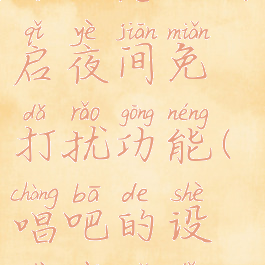 qǐ yè jiān miǎn
启夜间免
dǎ rǎo gōng néng
打扰功能(
chàng bā de shè
唱吧的设